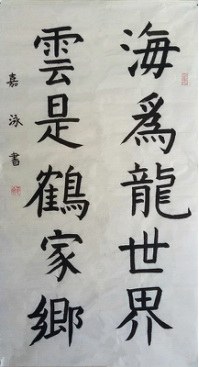 海為龍世界
雲是鶴家鄉
嘉泳書